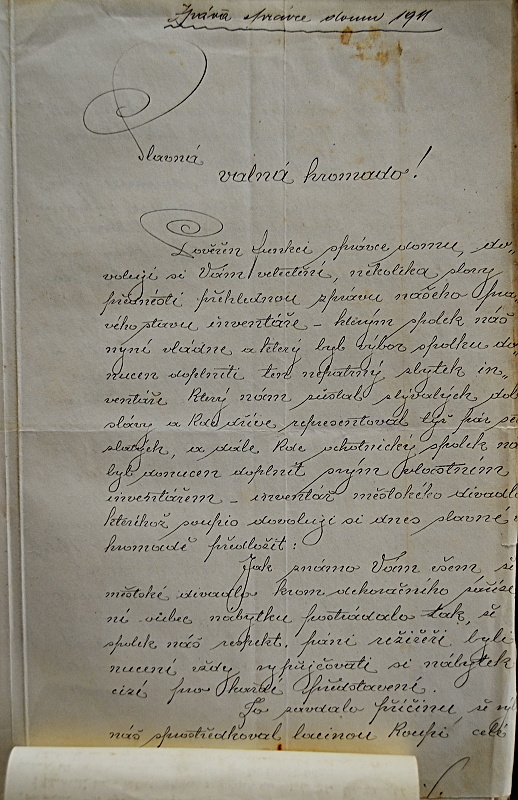 Zpráva správce domu 1911
Slavná
valná hromado!
Pověřen funkcí správce domu, do„
voluji si Vám velectění, několika slovy
přednésti přehlednou zprávu našeho pra„
vého stavu inventáře – kterým spolek náš
nyní vládne a který byl výbor spolku do„
nucen doplniti ten nepatrný zbytek in„
ventáře který nám zůstal z bývalých dob
slávy a kde dříve representoval týž pár se
zlatých, a dále kde ochotnický spolek ná
byl donucen doplnit svým vlastním
inventářem – inventář městského divadla
kteréhož soupis dovoluji si dnes slavné
hromadě předložit:
Jak známo Vám všem še
městské divadlo krom dekoračního zaříze
ní vůbec nábytku postrádalo tak, že
spolek náš respekt. páni režiséři byli
nuceni vždy vypůjčovati si nábytek
cizí pro každé představení.
To zavdalo příčinu že vý
náš zprostředkoval lacinou koupi celé